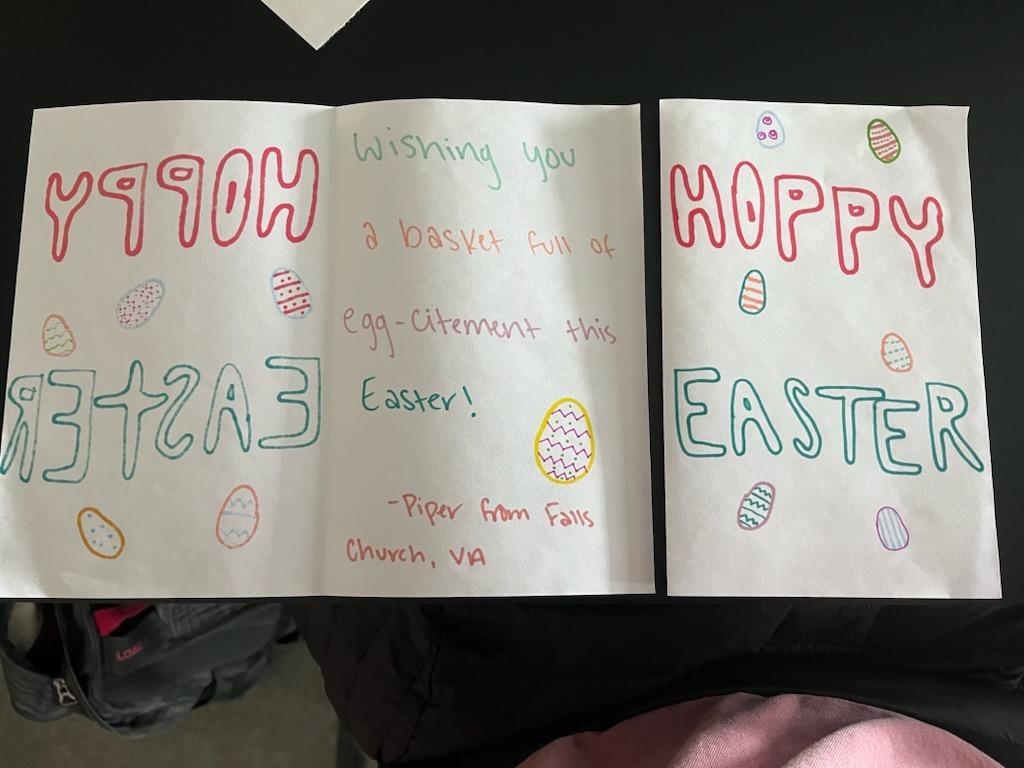 HOPPY
EASTER
Wishing you
a basket full of
egg-citement this
Easter!
-Piper from Falls
Church, VA
HOPPY
EASTER